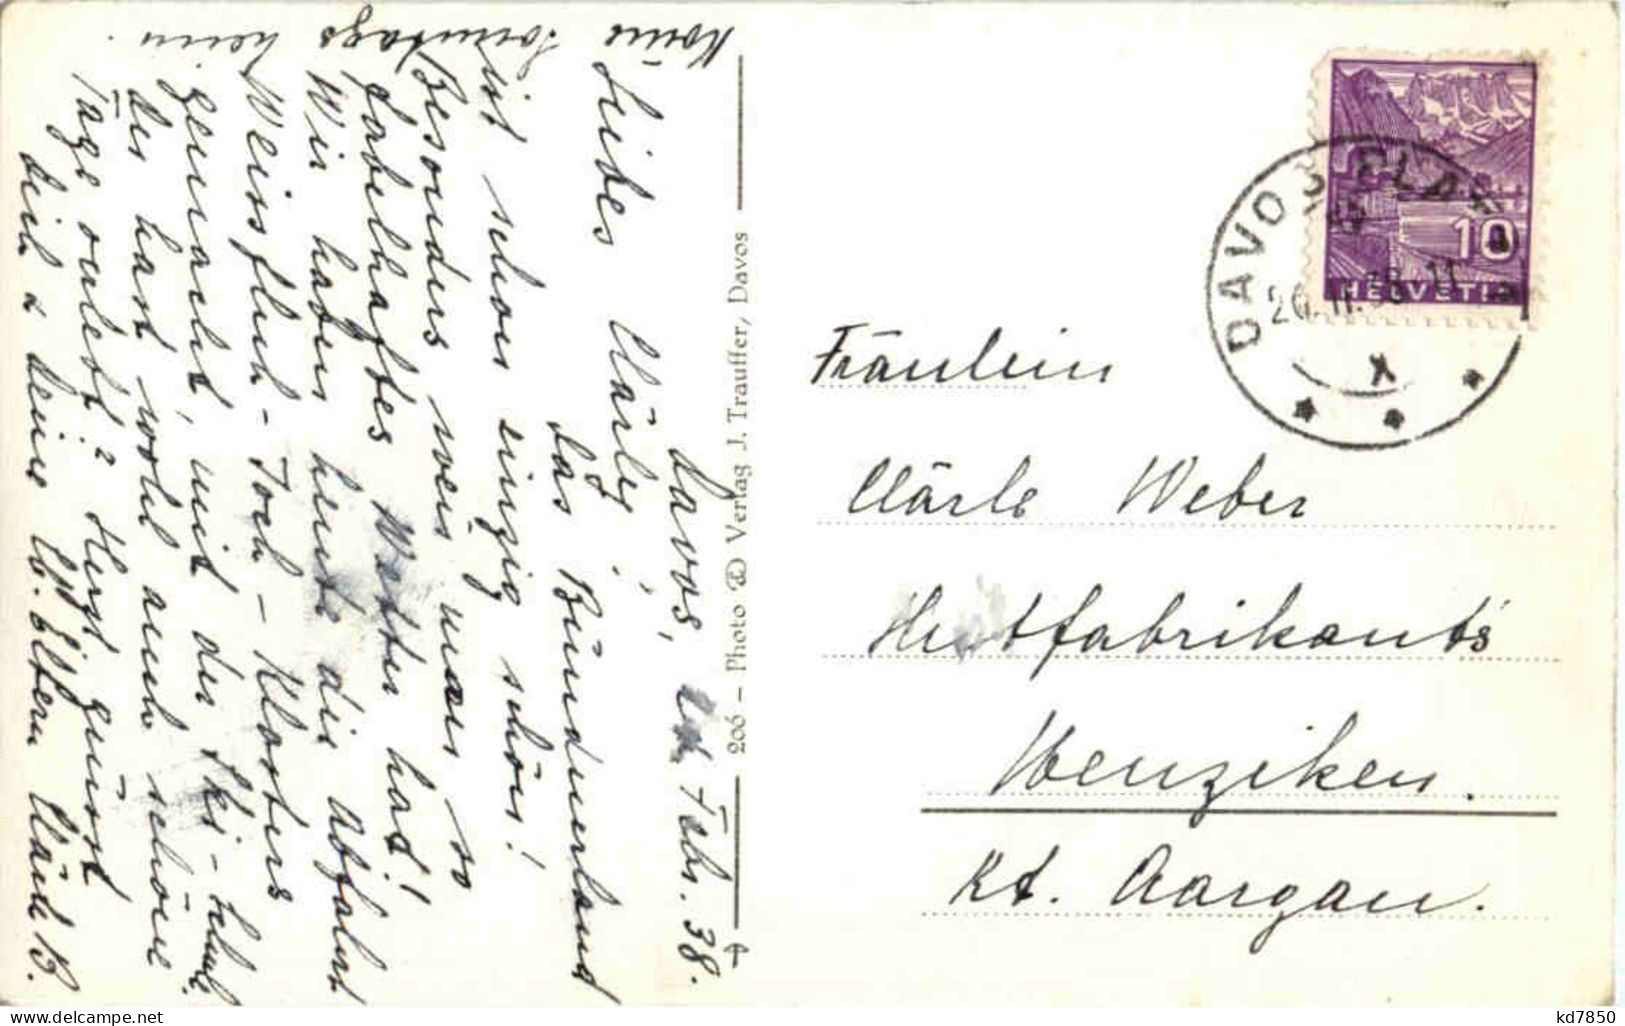 Davos, Febr. 38.
Liebes Clärly,
das Bündnerland
ist schon einzig schön!
Besonders weis man so
fabelhaftes Wetter hat!
Wir haben heute die Abfahrt
Weissfluh-Joch - Klosters
gemacht, mit der Ski-
du hast wohl auch schöne
Tage erlebt? Herzl. grüsst
dich & deine lb. Eltern
Komme Sonntags heim.
206 – Photo Verlag J. Trauffer, Davos
DAVOS PLATZ
X
10
HELVETIA
Fräulein
Clärle Weber
Hutfabrikants
Menziken.
Kt. Aargau.
kd7850